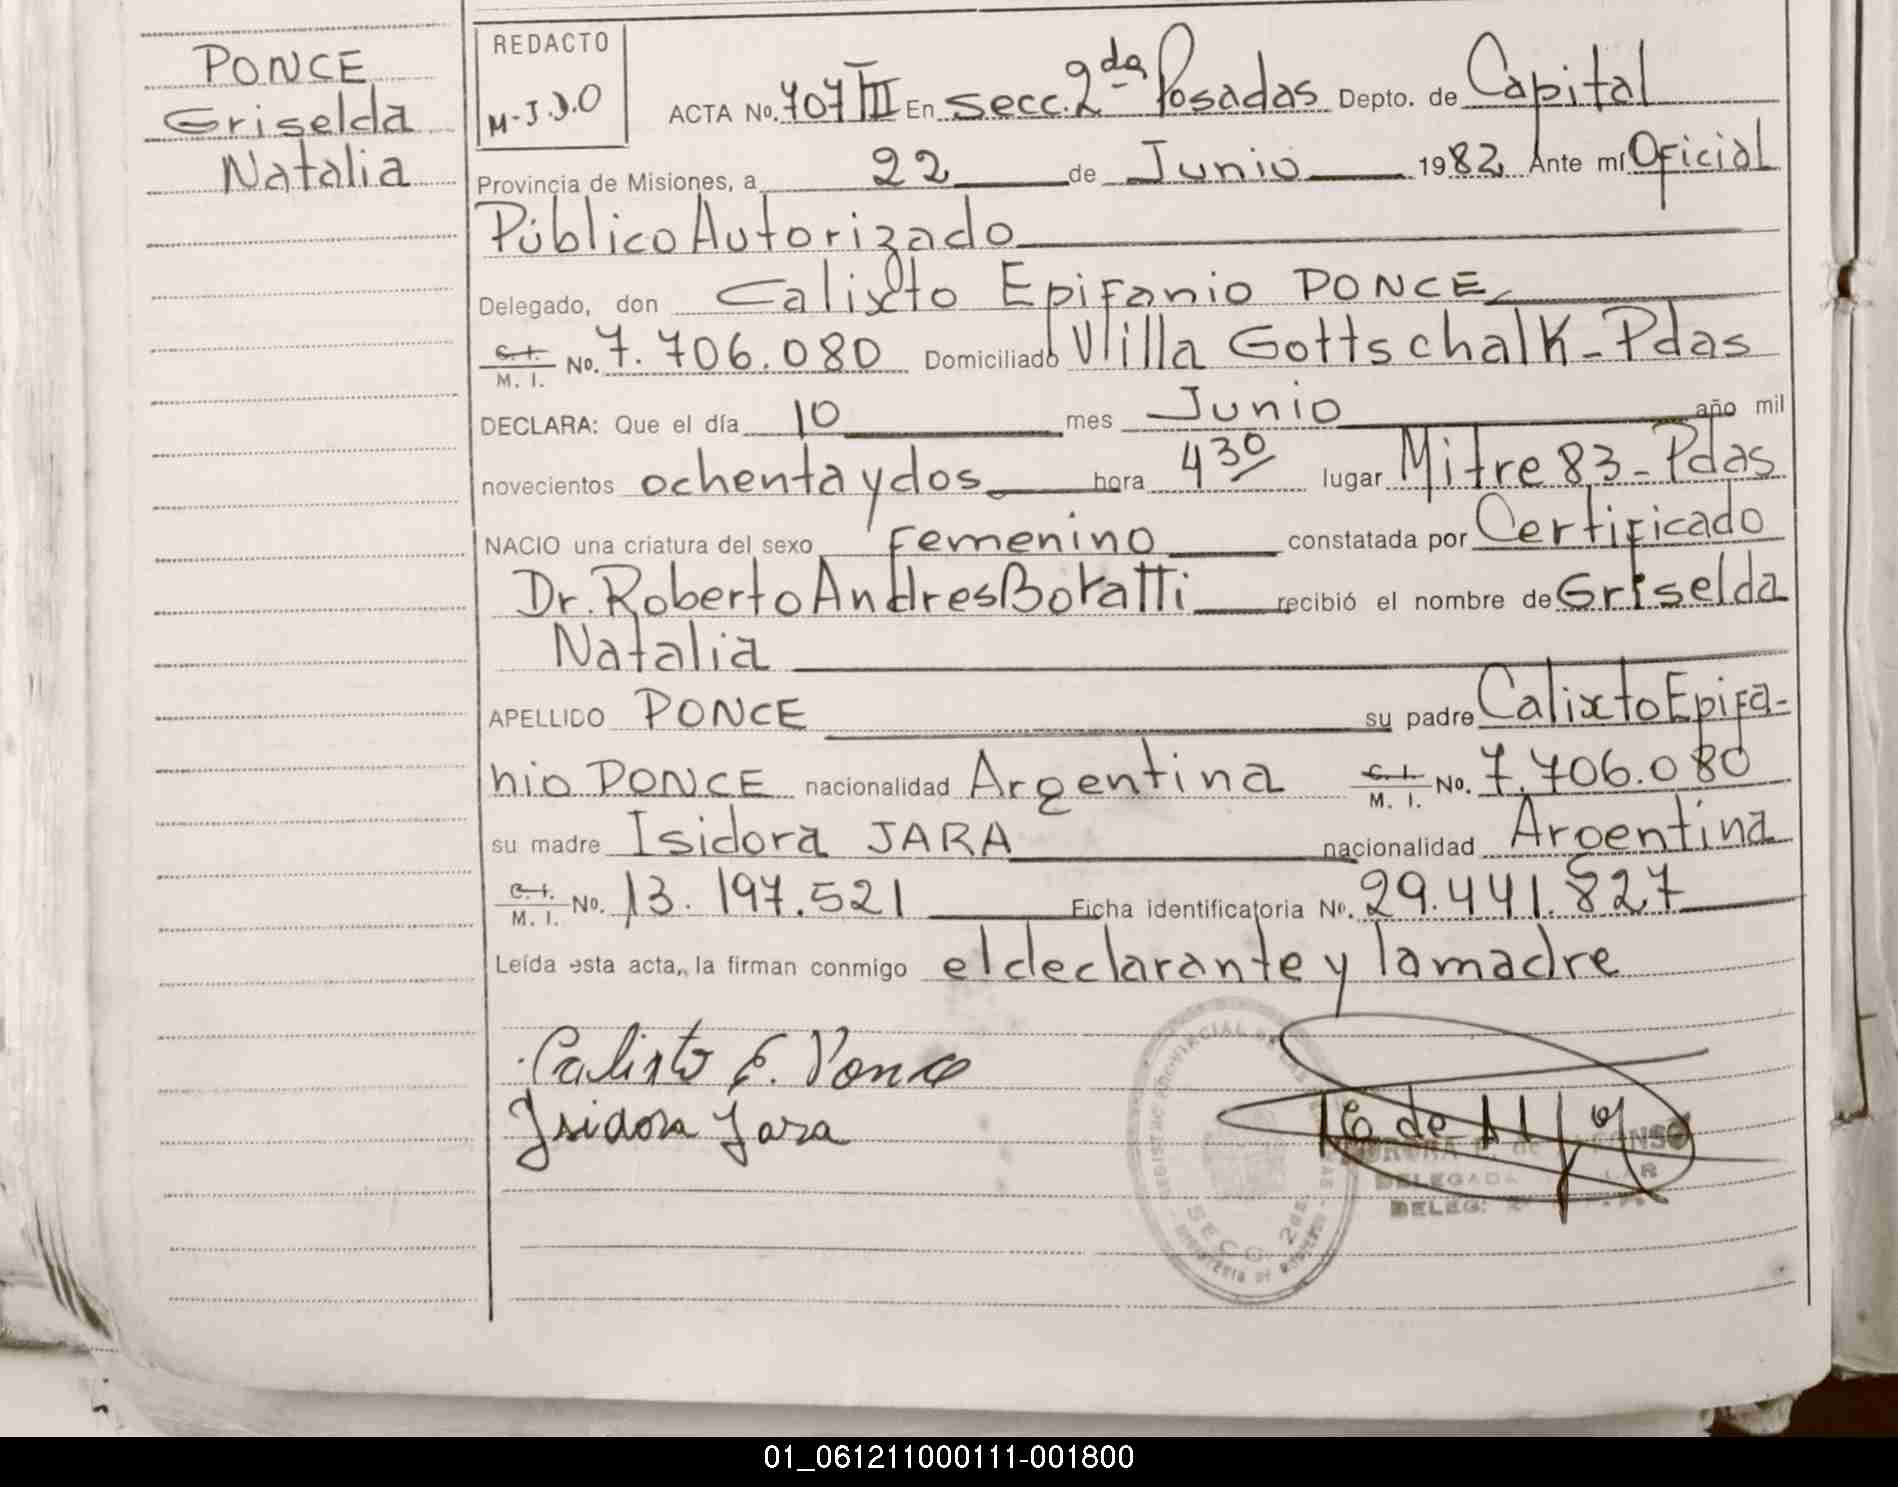 PONCE
Griselda
Natalia
REDACTO
M.J.J.O
ACTA No. 707 III En secc. 2da Posadas Depto. de Capital
Provincia de Misiones, a 22 de Junio 1982 Ante mí Oficial
Público Autorizado
Delegado, don Calixto Epifanio PONCE
C.I. M.I. No. 7.706.080 Domiciliado Villa Gottschalk - Pdas
DECLARA: Que el día 10 mes Junio año mil
novecientos ochenta y dos hora 4 30 lugar Mitre 83 - Pdas
NACIO una criatura del sexo femenino constatada por Certificado
Dr. Roberto Andres Boratti recibió el nombre de Griselda
Natalia
APELLIDO PONCE su padre Calixto Epifa-
nio PONCE nacionalidad Argentina C.I. M.I. No. 7.706.080
su madre Isidora JARA nacionalidad Argentina
C.I. M.I. No. 13.197.521 Ficha identificatoria No. 29.441.827
Leída esta acta, la firman conmigo el declarante y la madre
Calixto E. Ponce
Isidora Jara
DELEGADA
DELEG.
SECC. 2da
01_061211000111-001800